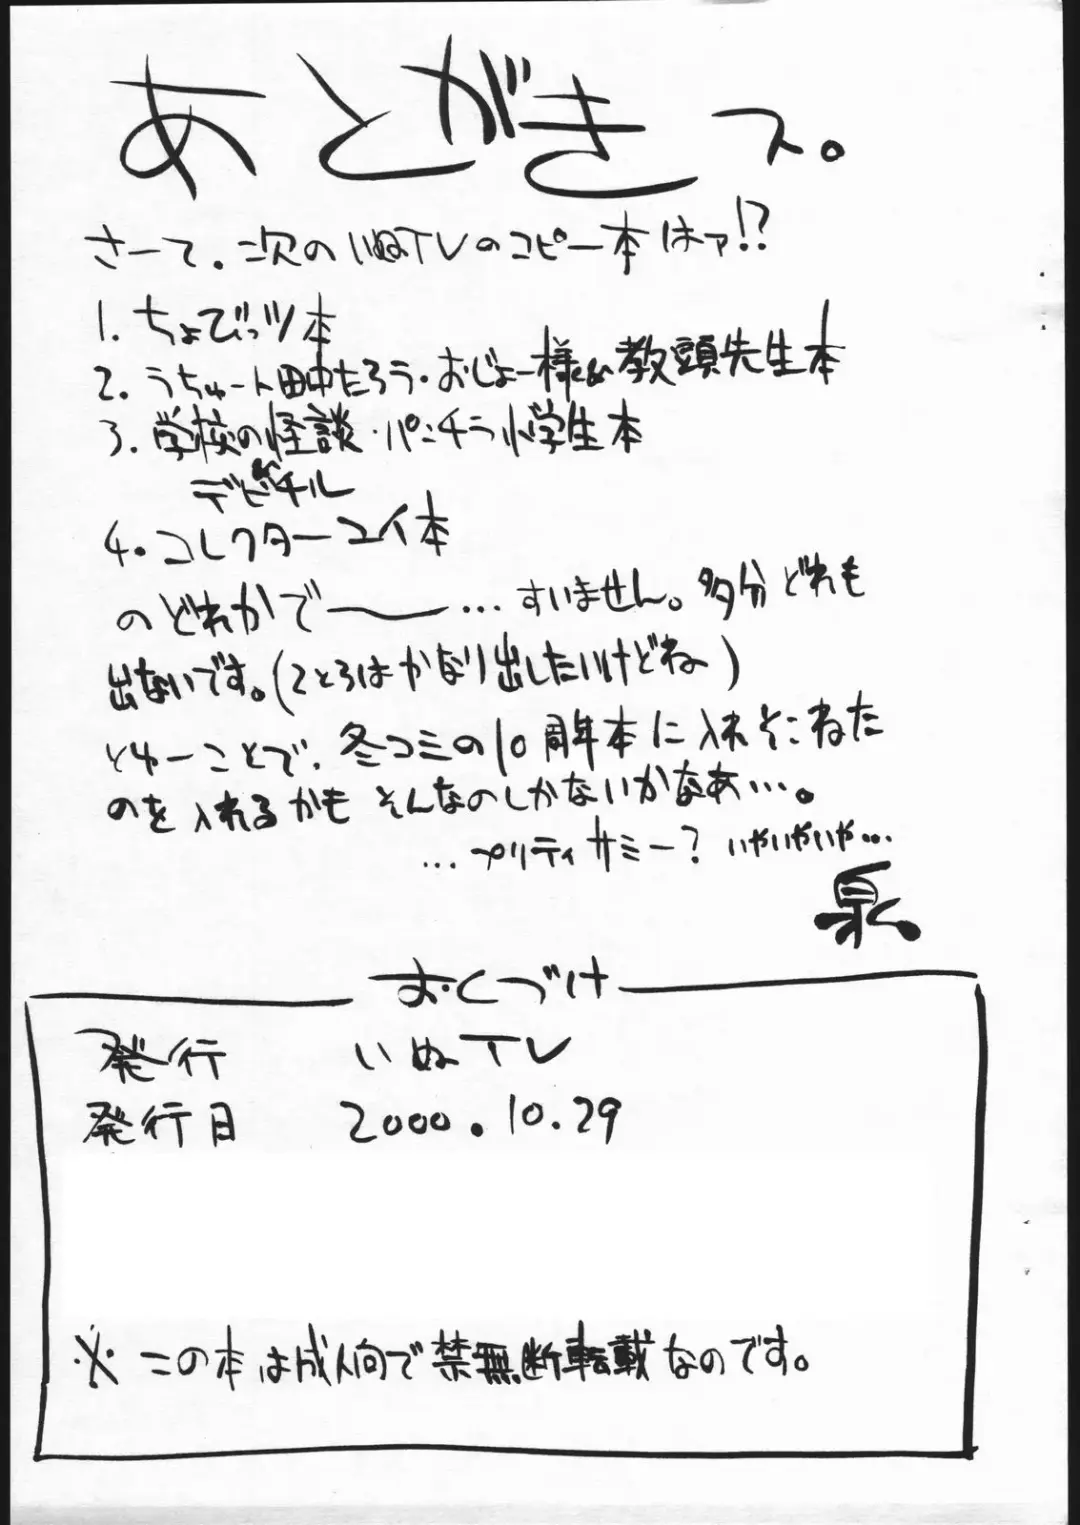 あとがきス。
さーて。次のいぬTVのコピー本はァ!?
1. ちょびっツ本
2. うちゅー人田中たろう・おじょー様&教頭先生本
3. 学校の怪談・パンチラ小学生本
デビチル
4. コレクターユイ本
のどれかでーー…すいません。多分どれも
出ないです。(2と3はかなり出したいけどね)
とゆーことで、冬コミの10周年本に入れそこねた
のを入れるかも そんなのしかないかなあ…。
…プリティサミー? いやいやいや…
泉
おくづけ
発行 いぬTV
発行日 2000.10.29
※この本は成人向で禁無断転載なのです。